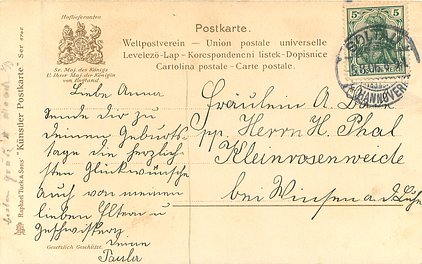 Hoflieferanten
Postkarte.
Weltpostverein – Union postale universelle
Levelező-Lap – Korespondenční listek – Dopisnice
Cartolina postale – Carte postale.
Sr. Maj. des Königs
U. Ihrer Maj. der Königin
von England
5 5
SOLTAU
HANNOVER
Liebe Anna
Sende dir zu
deinem Geburts-
tage die herzlich-
sten Glückwünsche
auch von meinen
lieben Eltern u
Geschwistern
deine
Paula
Fräulein A.
pp. Herrn H. Phal
Kleinrosenweide
bei Winsen a.d. Luhe
Gesetzlich Geschützt.
Raphael Tuck & Sons' "Künstler Postkarte" Ser